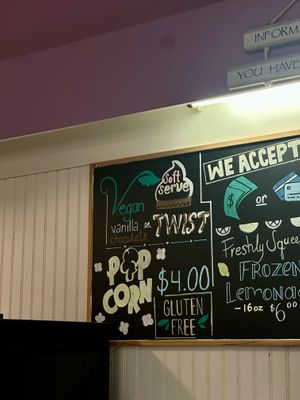 INFORM
YOU HAVE
Vegan
Soft
Serve
vanilla or
chocolate
TWIST
POP
CORN
$4.00
GLUTEN
FREE
WE ACCEPT
$
or
Freshly Squee
FROZEN
LEMONA
-16oz $6.00